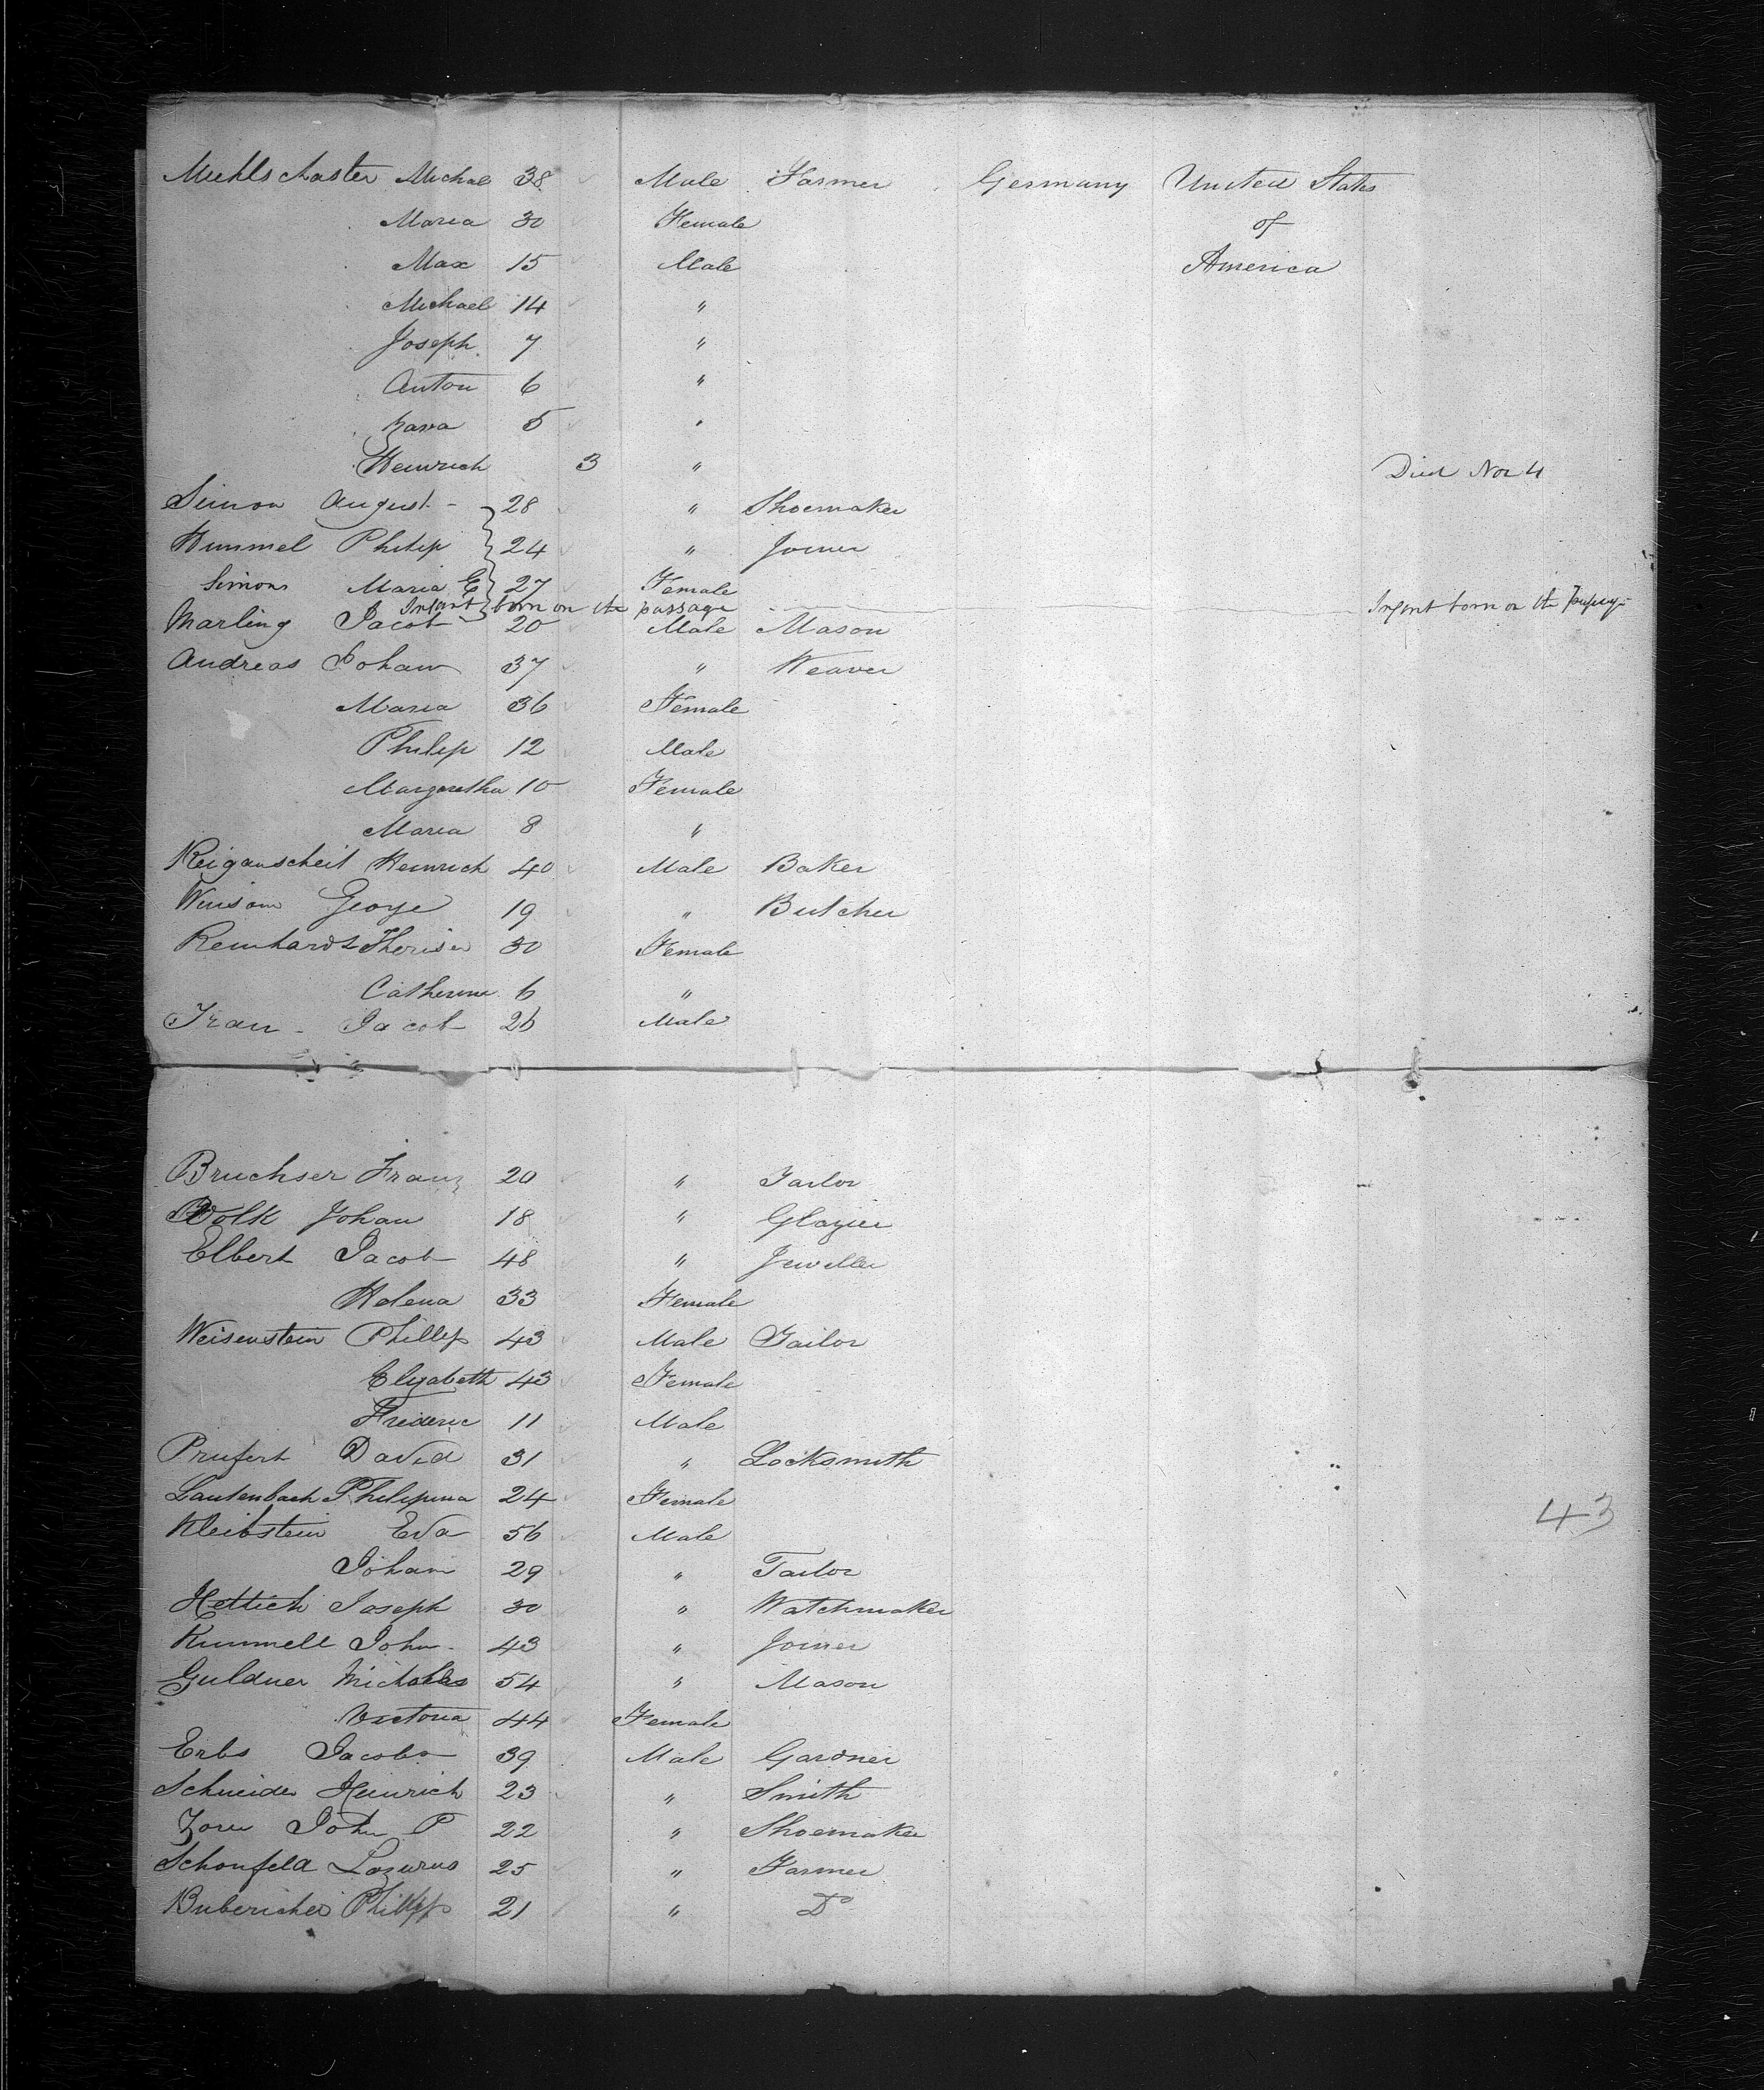 Muhlschaster Michae 38 Male Farmer Germany United States
Maria 30 Female of
Max 15 Male America
Michael 14 "
Joseph 7 "
Anton 6 "
Zava 5 "
Heinrich 3 " Died Nov 4
Simon August - 28 " Shoemaker
Hummel Philip 24 " Joiner
Simons Maria E 27 Female
Infant born on the passage Infant born on the passage
Marling Jacob 20 Male Mason
Andreas Johann 37 " Weaver
Maria 36 Female
Philip 12 Male
Margaretha 10 Female
Maria 8 "
Reiganscheit Heinrich 40 Male Baker
George 19 " Butcher
Reinhardt Therisa 30 Female
Catherine 6 "
Jacob 26 Male
Bruchser Franz 20 " Tailor
Wolk Johan 18 " Glazier
Elbert Jacob 48 " Jeweller
Helena 33 Female
Weisenstein Phillip 43 Male Tailor
Elizabeth 43 Female
Frederic 11 Male
Prufert David 31 " Locksmith
Lautenbach Philipina 24 Female
43
Kleibstein Eva 56 Male
Johann 29 " Tailor
Hettich Joseph 30 " Watchmaker
Kummell John - 43 " Joiner
Guldner Micholas 54 " Mason
Victoria 44 Female
Erbs Jacob 39 Male Gardner
Schneider Heinrich 23 " Smith
Zorn John P 22 " Shoemaker
Schonfeld Lazurus 25 " Farmer
Philipp 21 " Do